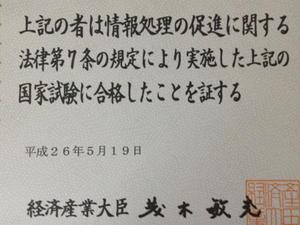 上記の者は情報処理の促進に関する
法律第7条の規定により実施した上記の
国家試験に合格したことを証する
平成26年5月19日
経済産業大臣 茂木敏充